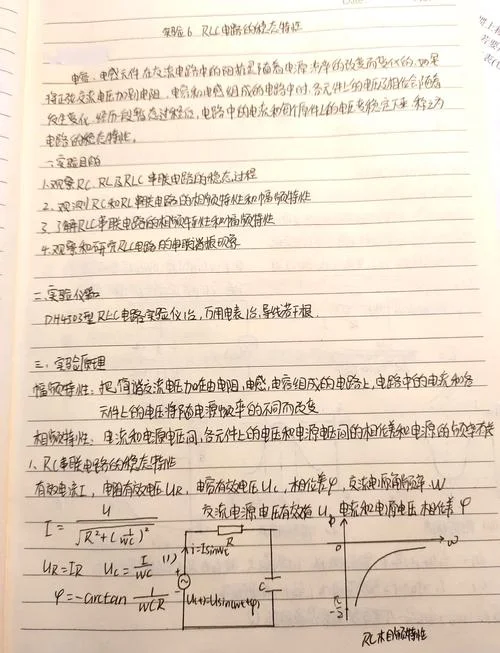 实验6 RLC电路的稳态特性
电容、电感元件在交流电路中的阻抗是随着电源频率的改变而变化的,如果
将正弦交流电压加到电阻、电容和电感组成的电路中时,各元件上的电压及相位会随着
发生变化,经历一段暂态过程后,电路中的电流和每个原件上的电压变稳定下来,称之为
电路的稳态特性。
一、实验目的
1.观察RC、RL及RLC串联电路的稳态过程
2.观测RC和RL串联电路的相频特性和幅频特性
3.了解RLC串联电路的相频特性和幅频特性
4.观察和研究RLC电路的串联谐振现象
二、实验仪器
DH4503型RLC电路实验仪1台,万用电表1台,导线若干根。
三、实验原理
幅频特性:把简谐交流电压加在由电阻,电感,电容组成的电路上,电路中的电流和各
元件上的电压将随电源频率的不同而改变
相频特性:电流和电源电压间,各元件上的电压和电源电压间的相位差和电源的频率有关
1、RC串联电路的稳态特性
有效电流I,电阻有效电压UR,电容有效电压UC,相位差φ,交流电源角频率w
交流电源电压有效值U,电流和电源电压相位差φ
I = U/√(R²+(1/wC)²)
UR=IR UC=I/wC (1)
φ=-arctan 1/wCR
R
i=Isinwt
C
U(t)=Usin(wt+φ)
φ
0
w
-π/2
RC相频特性